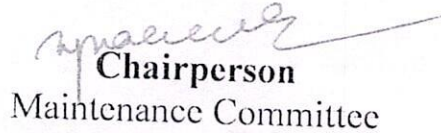 Chairperson
Maintenance Committee